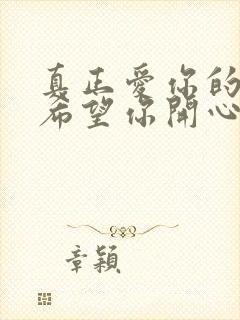 真正愛你的
希望你開心
章穎